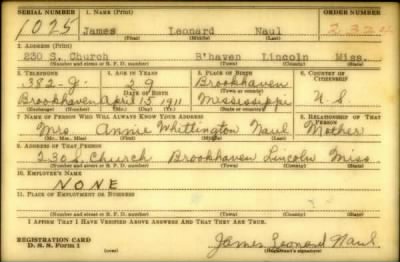 SERIAL NUMBER 1. NAME (Print) ORDER NUMBER
1025 James Leonard Naul
(First) (Middle) (Last)
2. ADDRESS (Print)
230 S. Church B'haven Lincoln Miss.
(Number and street or R. F. D. number) (Town) (County) (State)
3. TELEPHONE 4. AGE IN YEARS 5. PLACE OF BIRTH 6. COUNTRY OF CITIZENSHIP
382-J. 29 Brookhaven
DATE OF BIRTH (Town or county)
Brookhaven April 15 1911 Mississippi U.S.
(Exchange) (Mo.) (Day) (Yr.) (State or country)
7. NAME OF PERSON WHO WILL ALWAYS KNOW YOUR ADDRESS 8. RELATIONSHIP OF THAT PERSON
Mrs. Annie Whittington Naul Mother
(Mr., Mrs., Miss) (First) (Middle) (Last)
9. ADDRESS OF THAT PERSON
230 S. Church Brookhaven Lincoln Miss
(Number and street or R. F. D. number) (Town) (County) (State)
10. EMPLOYER'S NAME
NONE
11. PLACE OF EMPLOYMENT OR BUSINESS
(Number and street or R. F. D. number) (Town) (County) (State)
I AFFIRM THAT I HAVE VERIFIED ABOVE ANSWERS AND THAT THEY ARE TRUE.
REGISTRATION CARD
D. S. S. Form 1 James Leonard Naul
(Registrant's signature)